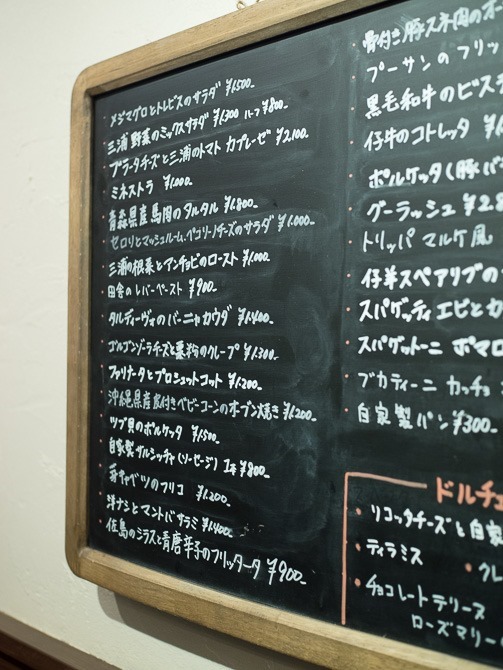 メジマグロとトレビスのサラダ ¥1,500-
三浦野菜のミックスサラダ ¥1300 ハーフ ¥800-
ブラータチーズと三浦のトマト カプレーゼ ¥2,100-
ミネストラ ¥1,000-
青森県産馬肉のタルタル ¥1,800-
セロリとマッシュルーム、ペコリーノチーズのサラダ ¥1,000-
三浦の根菜とアンチョビのロースト ¥1,000-
田舎のレバーペースト ¥900-
タルディーヴォのバーニャカウダ ¥1,400-
ゴルゴンゾーラチーズと栗粉のクレープ ¥1,300-
ファリナータとプロシュットコット ¥1,200-
沖縄県産皮付きベビーコーンのオーブン焼き ¥1,200-
ツブ貝のポルケッタ ¥1,500-
自家製サルシッチャ(ソーセージ) 1本 ¥800-
キャベツのフリコ ¥1,200-
洋ナシとマントバサラミ ¥1,400-
佐島のシラスと青唐辛子のフリッタータ ¥900-
骨付き豚スネ肉のオー
プーサンのフリッ
黒毛和牛のビステ
仔牛のコトレッタ
ポルケッタ(豚バ
グーラッシュ ¥2,8
トリッパ マルケ風
仔羊スペアリブの
スパゲッティ エビとカ
スパゲットーニ ポマロ
ブカティーニ カッチョ
自家製パン ¥300-
ドルチェ
リコッタチーズと自家
ティラミス ・クレ
チョコレートテリーヌ
ローズマリー